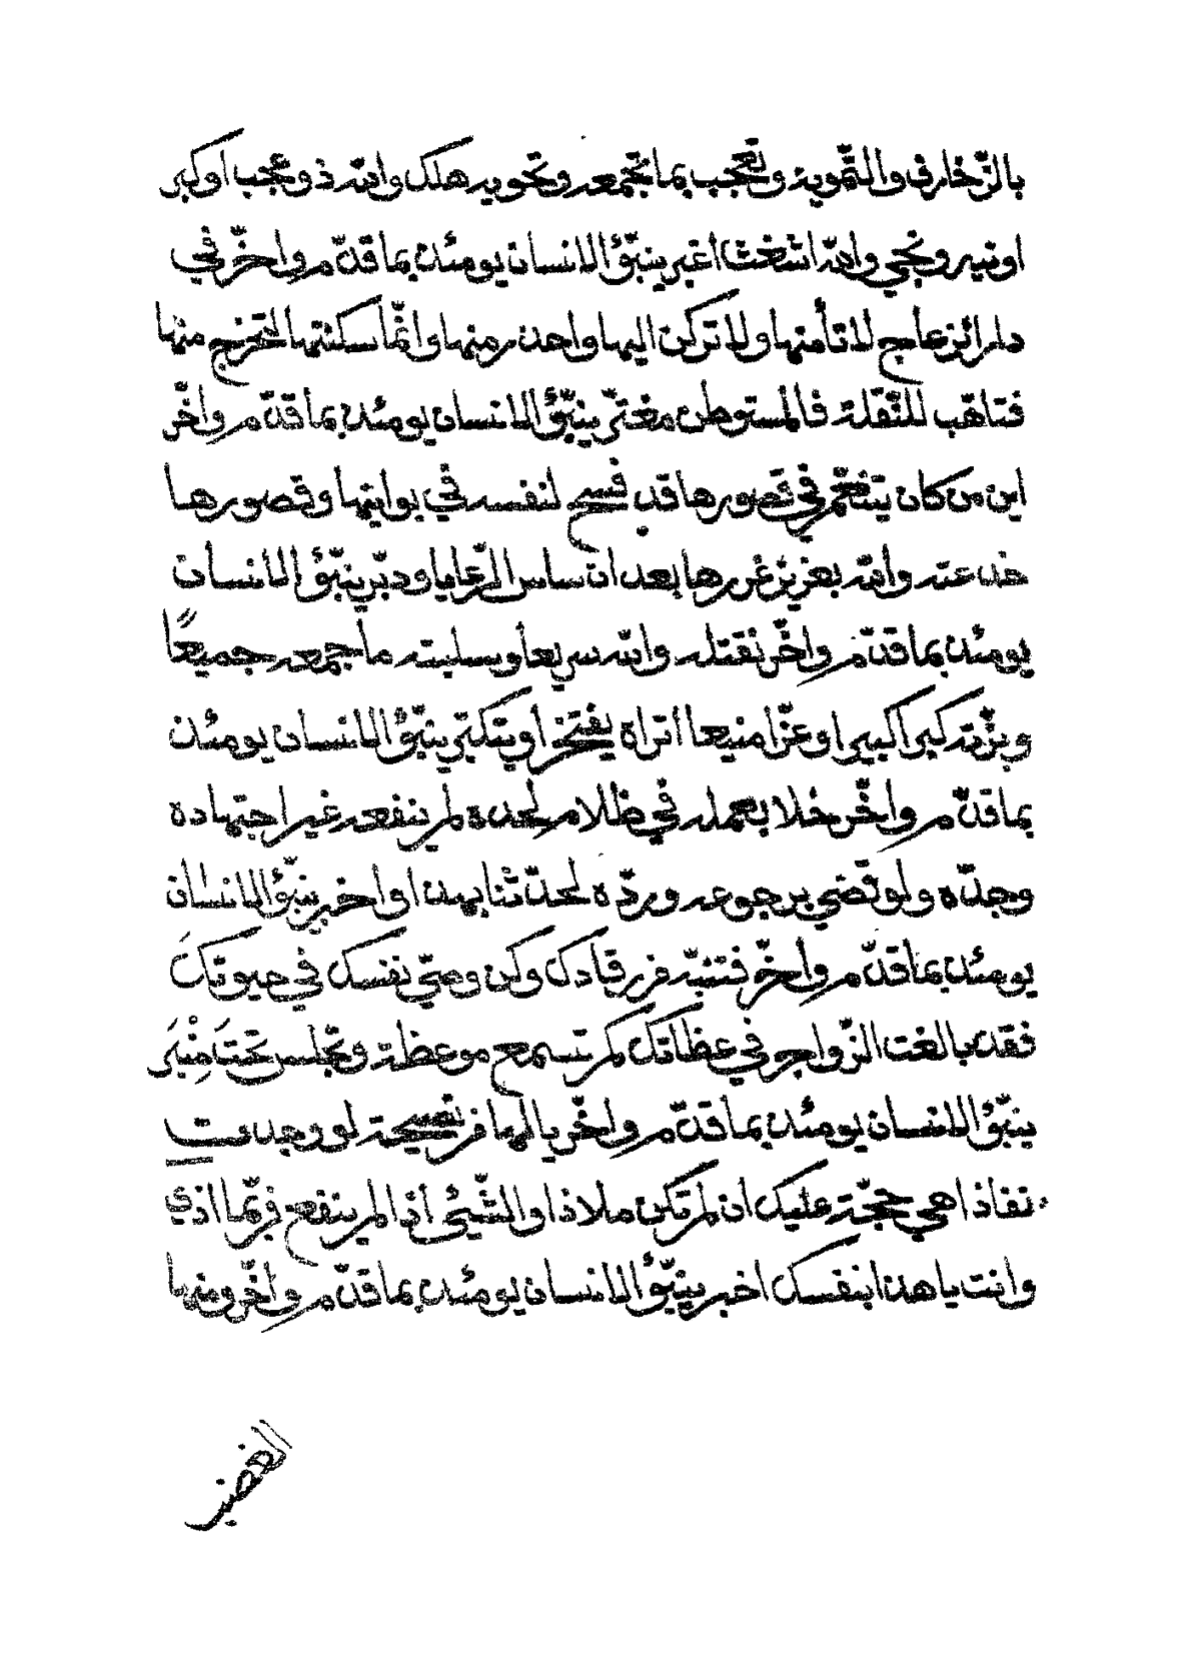 بالزّخارف والتّموية وتعجب بما تجمعه وتحويه هلك والله ذو عجب او كبر
اوتيه ونجي والله اشعث اغبر ينبّؤ الانسان يومئذ بما قدّم واخّر في
دار ازعاج لا تأمنها ولا تركن اليها واحذر منها وانّما سكنتها لتخرج منها
فتاهّب للنّقلة فالمستوطن مغترّ ينبّؤ الانسان يومئذ بما قدّم واخّر
اين من كان يتنعّم في قصورها قد فسح لنفسه في بوايتها وقصورها
خدعته والله بغرير غرورها بعد ان ساس الرّعايا ودبّر ينبّؤ الانسان
يومئذ بما قدّم واخّر نقتله والله سريعا وسلبته ما جمعه جميعًا
وبزّته كبرا كبيرا وعزّا منيعا اتراه يفتخر أو يتكبّر ينبّؤ الانسان يومئذ
بما قدّم واخّر خلا بعمله في ظلام لحده لم ينفعه غير اجتهاده
وجدّه ولو قضي برجوعه وردّه لحدّثنا بهذا واخبر ينبّؤ الانسان
يومئذ بما قدّم واخّر فتنبّه فرقادك وكن وصيّ نفسك في حيوتكَ
فقد بالغت الزّواجر في عظاتك كم تسمع موعظة وتجلس تحتَ مِنْبَر
ينبّؤ الانسان يومئذ بما قدّم واخّر يالها فر نصيحة لو وجدت
نفاذا هي حجّة عليك ان لم تكن ملاذا والشّيئ أذا لم ينفع فربّما اذي
وانت يا هذا بنفسك اخبر ينبّؤ الانسان يومئذ بما قدّم واخّر ومنها